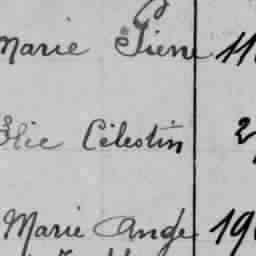 Marie Pierre 11
Elie Célestin 2
Marie Ange 19